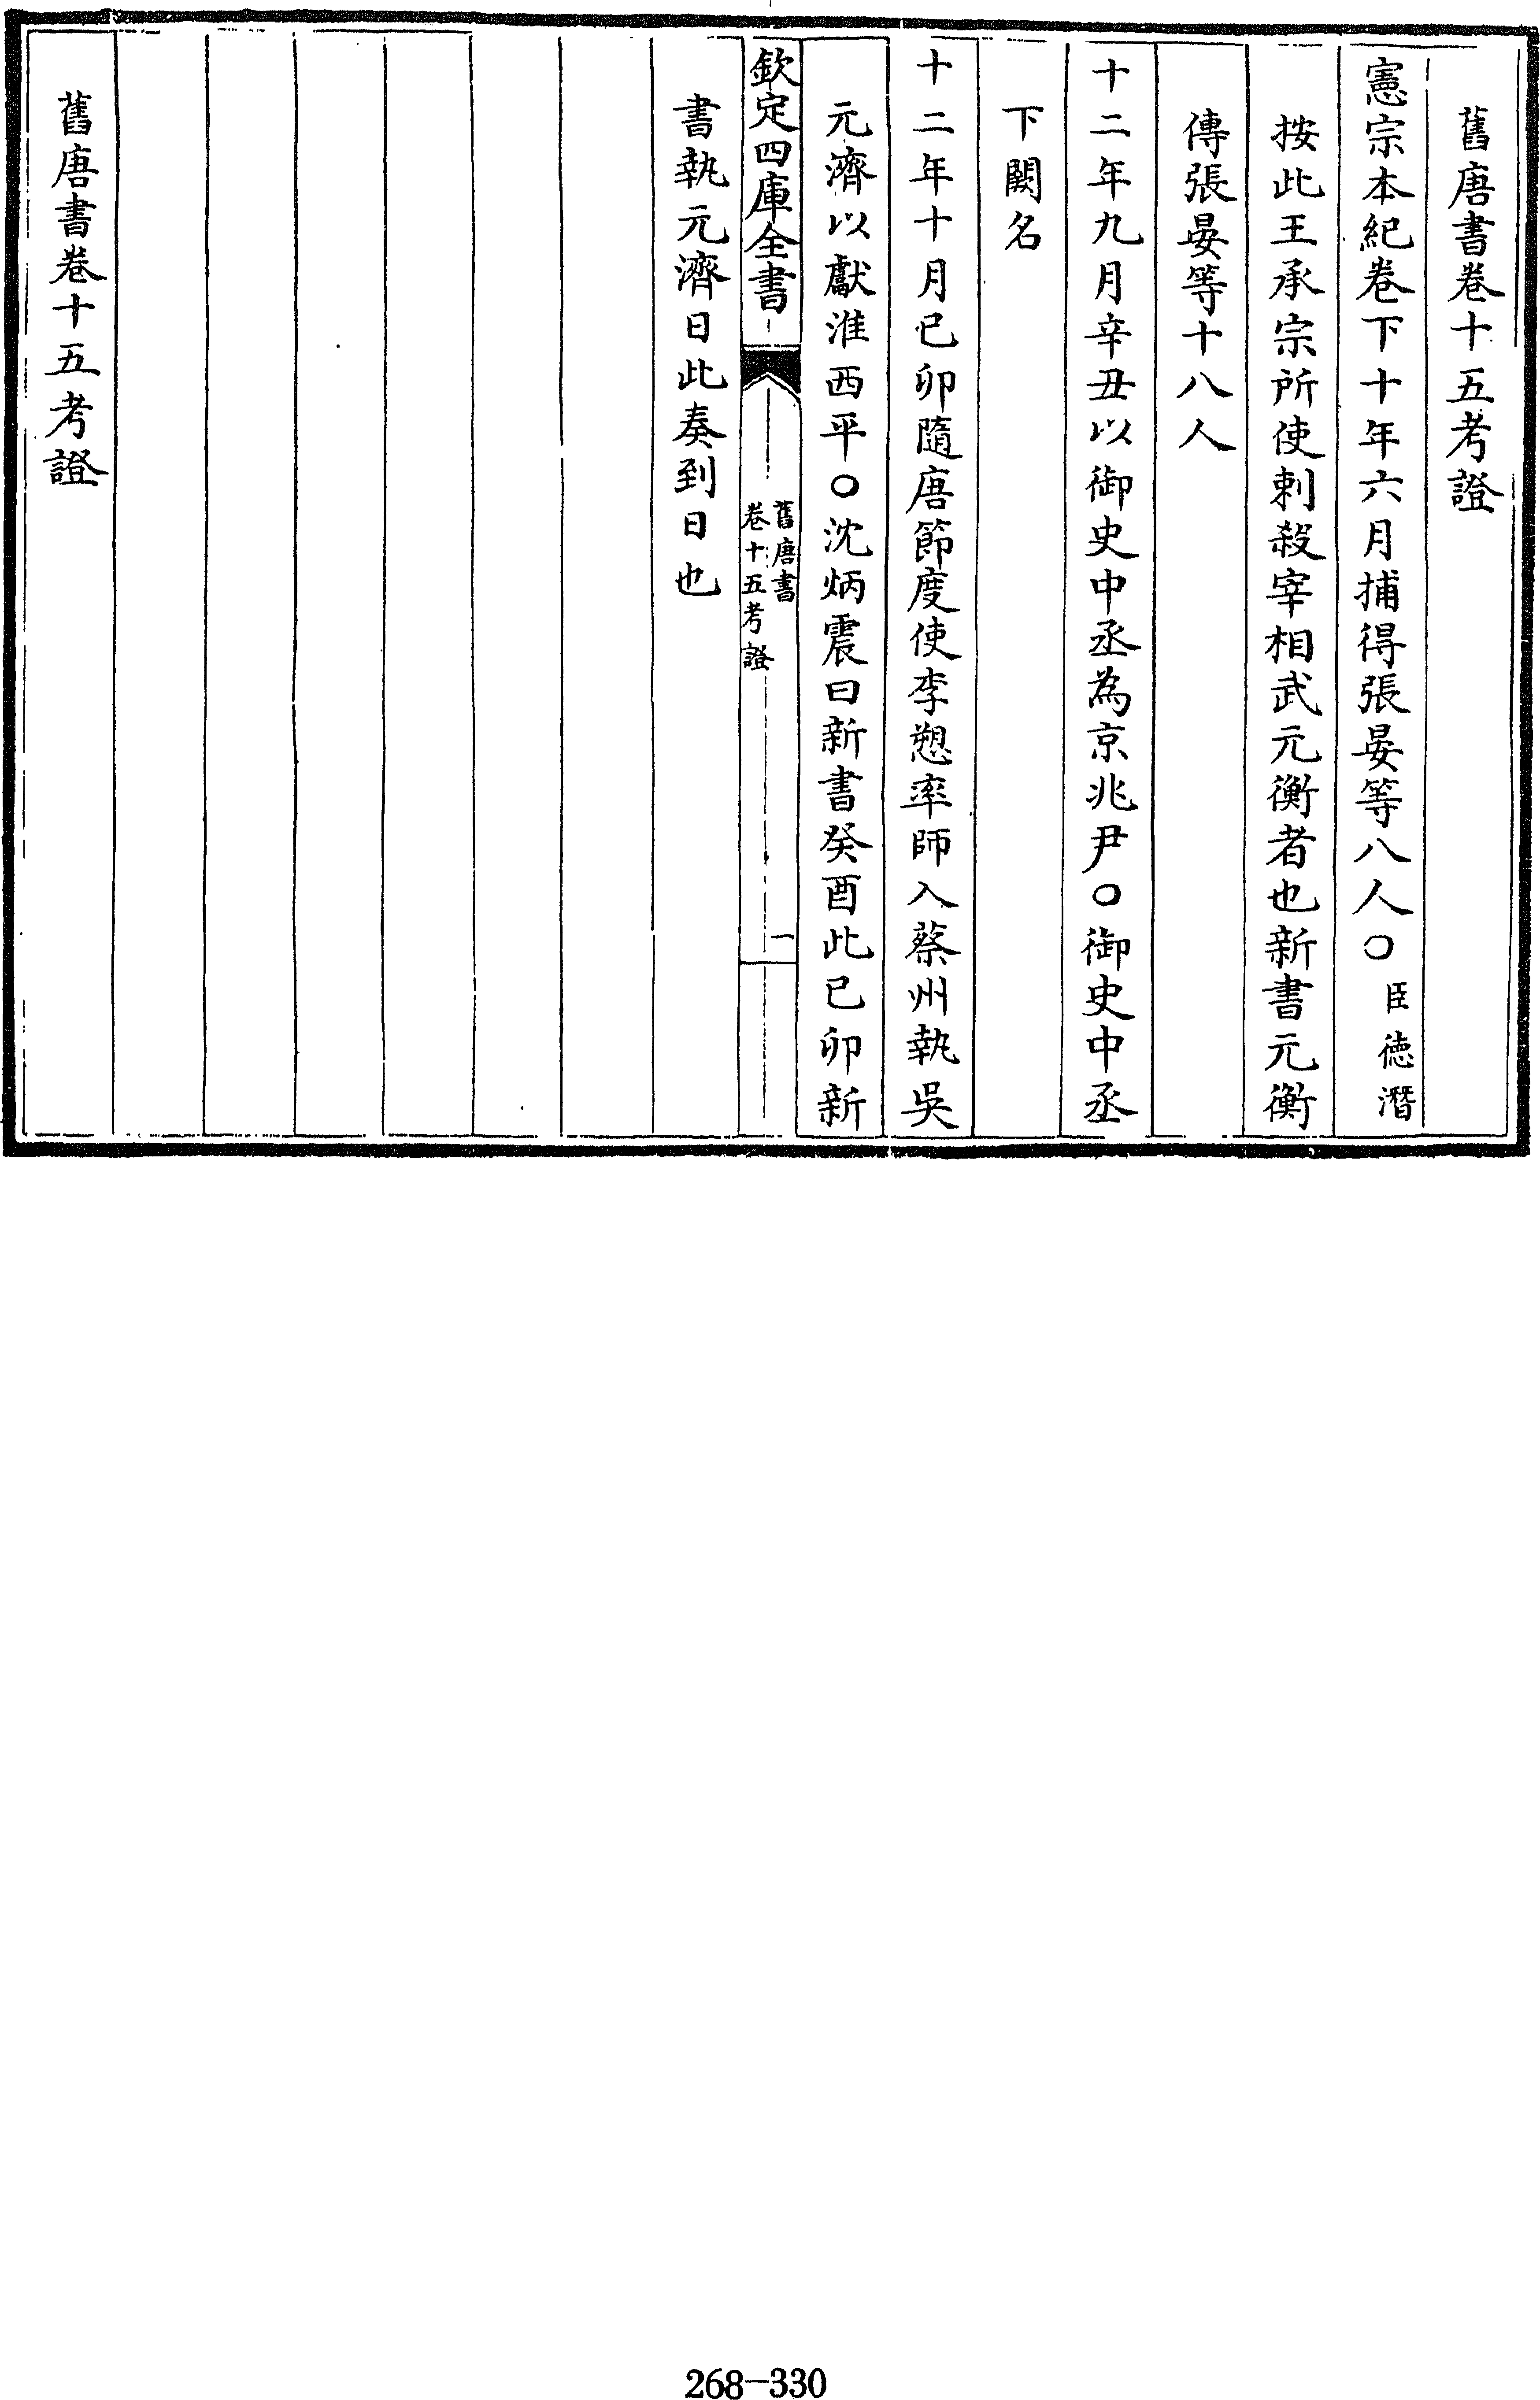 舊唐書卷十五考證
憲宗本紀卷下十年六月捕得張晏等八人〇臣德潛
按此王承宗所使刺殺宰相武元衡者也新書元衡
傳張晏等十八人
十二年九月辛丑以御史中丞為京兆尹〇御史中丞
下闕名
十二年十月已卯隨唐節度使李愬率師入蔡州執吳
元濟以獻淮西平〇沈炳震曰新書癸酉此已卯新
欽定四庫全書
舊唐書
卷十五考證
一
書執元濟日此奏到日也
舊唐書卷十五考證
268-330